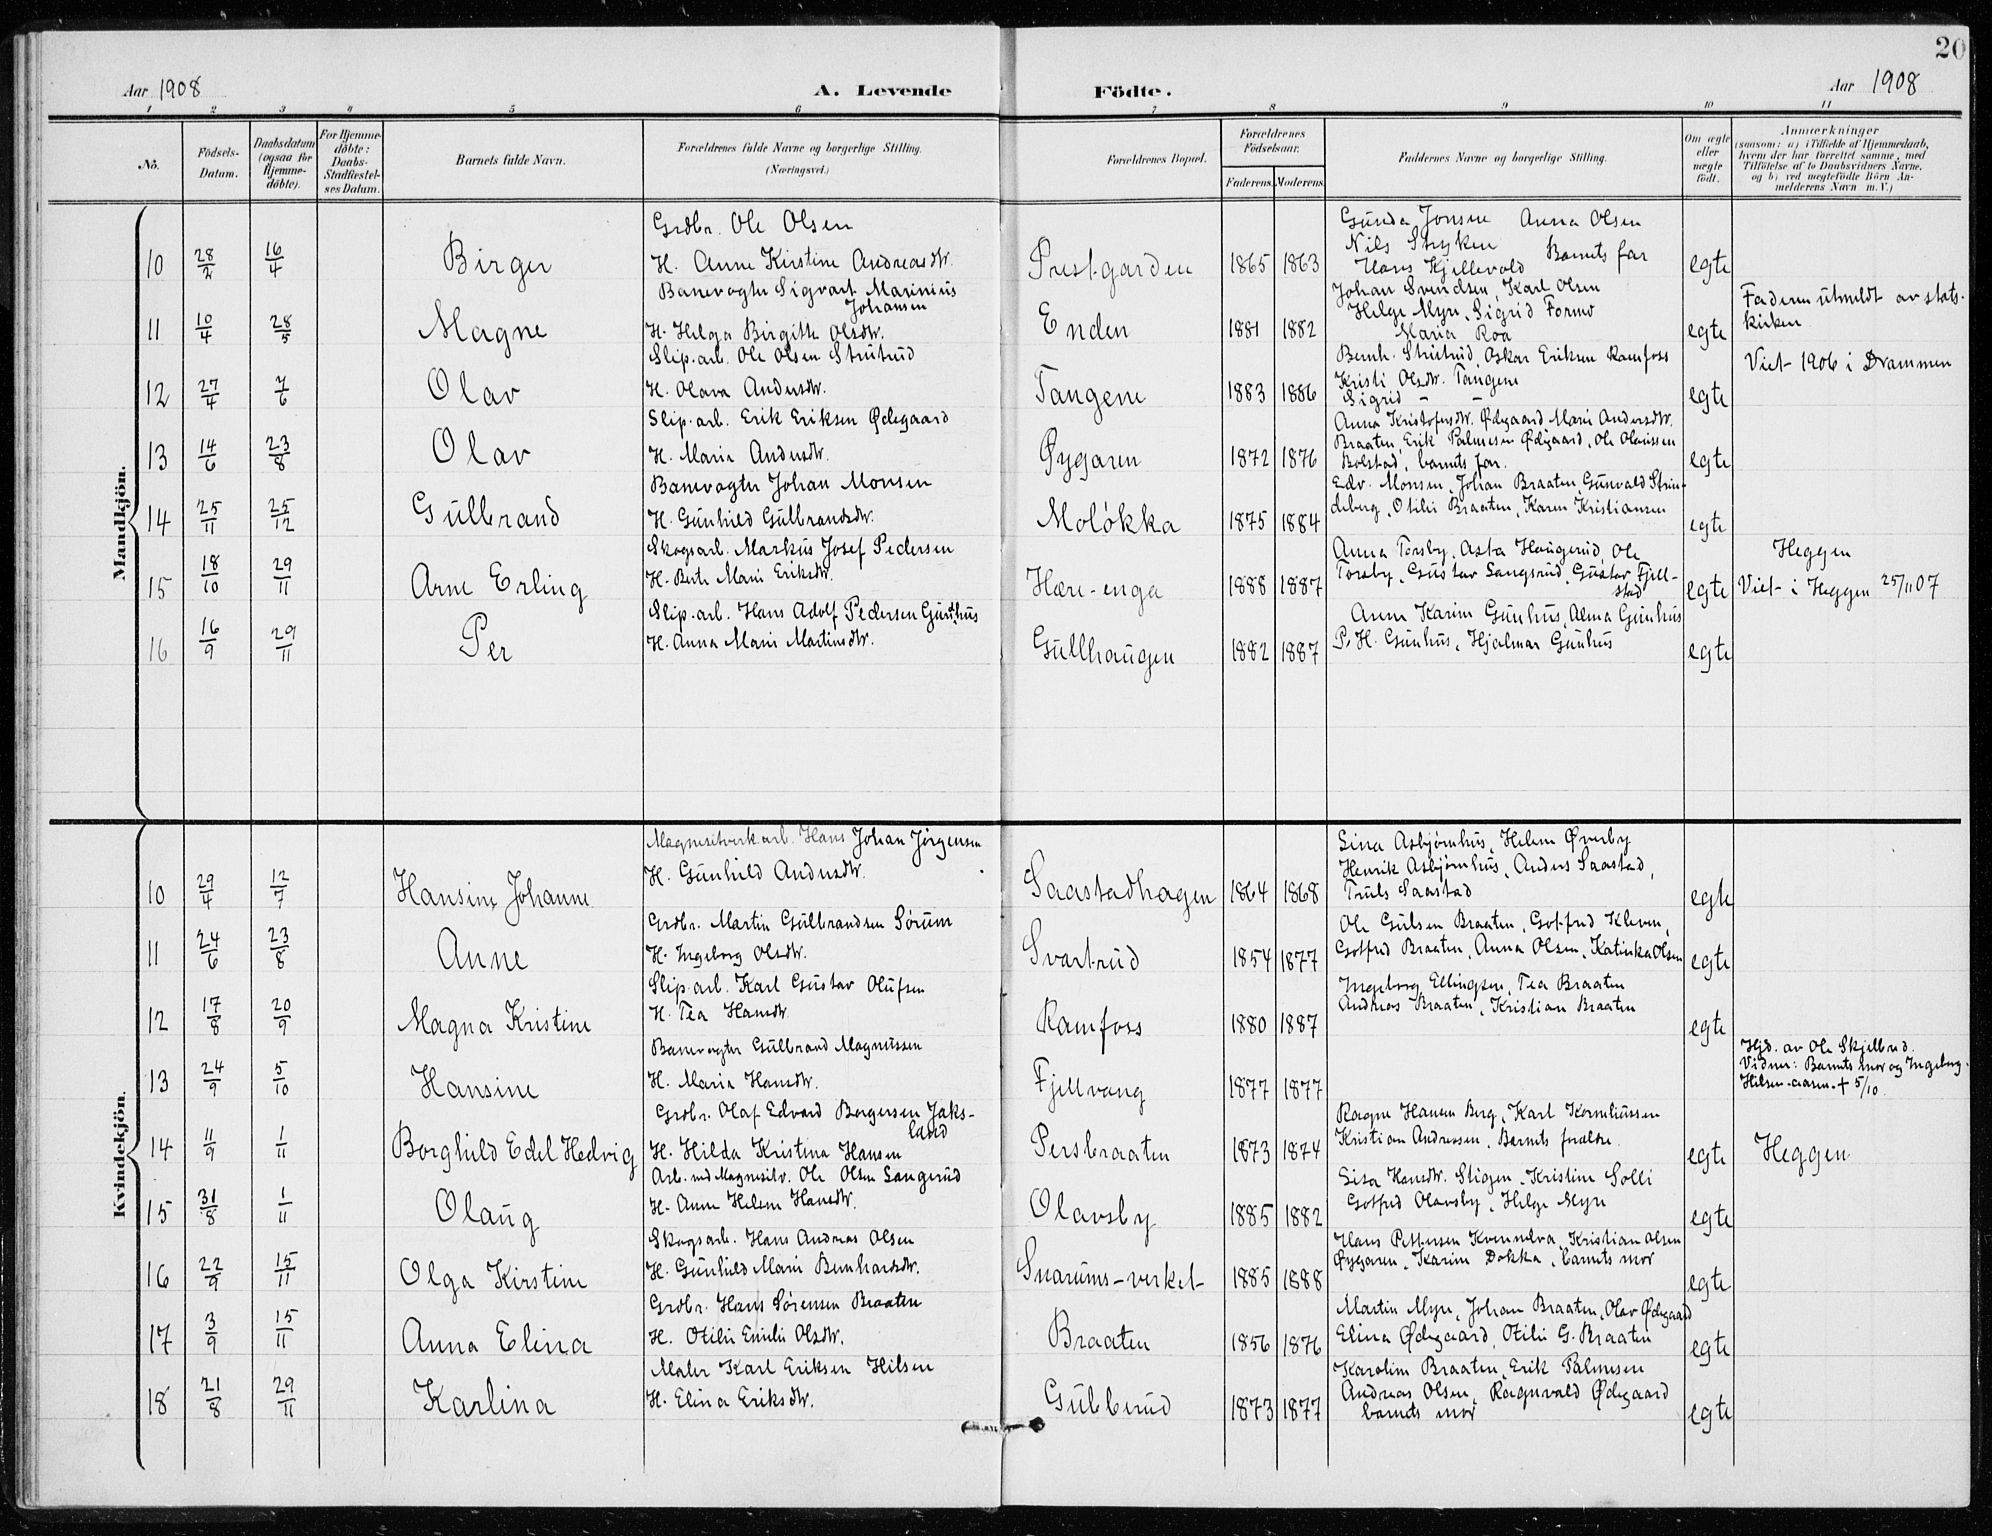 20
Aar 1908 A. Levende Födte. Aar 1908
1 2 3 4 5 6 7 8 9 10 11
No.
Födsels-Datum.
Daabsdatum (ogsaa for Hjemme-döbte).
For Hjemme-döbte: Daabs-Stadfæstel-ses Datum.
Barnets fulde Navn.
Forældrenes fulde Navne og borgerlige Stilling. (Næringsvei.)
Forældrenes Bopæl.
Forældrenes Födselsaar.
Faderens. Moderens.
Faddernes Navne og borgerlige Stilling.
Om ægte eller uægte födt.
Anmærkninger
(saasom: a) i Tilfælde af Hjemmedaab,
hvem der har forrettet samme, med
Tilföielse af to Daabsvidners Navne.
og b) ved uegtefödte Börn An-
melderens Navn m. V.)
Mandkjön.
10 28/2 16/4 Birger
Grdbr. Ole Olsen
H. Anne Kirstine Andreasdtr.
Prestgarden 1865 1863
Gunda Jonsen Anna Olsen
Nils Stryken Barnets far
Hans Kjellevold
egte
11 10/4 28/5 Magne
Banevogter Sigvart Marinius
Johansen
H. Helga Birgitte Olsdtr.
Enden 1881 1882
Johan Svendsen, Karl Olsen
Helge Myre, Sigrid Formo
Maria Roa
egte
Faderen utmeldt av stats-
kirken
12 27/4 7/6 Olav
Slip. arb. Ole Olsen Strutrud
H. Olava Andersdtr.
Tangene 1883 1886
Bernh. Strutrud, Oskar Eriksen Ramfoss
Kristi Olsdtr. Tangene
Sigrid - -
egte
Viet 1906 i Drammen
13 14/6 23/8 Olav
Slip. arb. Erik Eriksen Ødegaard
H. Maria Andersdtr.
Øygaren 1872 1876
Anna Kristofersdtr. Ødegaard Marie Andersdtr.
Braaten, Erik Palmesen Ødegaard, Ole Olavssen
Bolstad, barnets far.
egte
14 25/11 25/12 Gulbrand
Banevogter Johan Monsen
H. Gunhild Gulbrandsdtr.
Moløkka 1875 1884
Edv. Monsen, Johan Braaten, Gunvald Strin-
deberg, Otilie Braaten, Karen Kristiansen
egte
15 18/10 29/11 Arne Erling
Skogsarb. Markus Josef Pedersen
H. Berte Marie Eriksdtr.
Hære-enga 1888 1887
Anna Torsby, Asta Haugerud, Ole
Torsby, Gustav Sangsrud, Gustav Fjell-
stad
egte
Heggen
Viet i Heggen 25/11 07
16 16/9 29/11 Per
Slip. arb. Hans Adolf Pedersen Gunhus
H. Anna Marie Martinsdtr.
Gullhaugen 1882 1887
Anne Karine Gunhus, Alma Gunhus
P. H. Gunhus, Hjalmar Gunhus
egte
Kvindekjön.
10 29/4 12/7 Hansine Johanne
Magnesitverkarb. Hans Johan Jørgensen
H. Gunhild Andersdtr.
Saastadhagen 1864 1868
Lina Asbjørnhus, Helene Øverby
Henrik Asbjørnhus, Anders Saastad,
Truls Saastad
egte
11 24/6 23/8 Anne
Grdbr. Martin Gulbrandsen Sørum
H. Ingeborg Olsdtr.
Svartrud 1854 1877
Ole Gulsen Braaten, Gotfred Kleven,
Gotfred Braaten, Anna Olsen, Katinka Olsen
egte
12 17/8 20/9 Magna Kristine
Slip. arb. Karl Gustav Olufsen
H. Tea Hansdtr.
Ramfoss 1880 1887
Ingeborg Ellingsen, Tea Braaten
Andreas Braaten, Kristian Braaten
egte
13 24/9 5/10 Hansine
Banevogter Gulbrand Magnussen
H. Maria Hansdtr.
Fjellvang 1877 1877
Hjd. av Ole Skjelbred.
Vidner: Barnets mor og Ingeborg
Hilsen-aarn. + 5/10.
14 11/9 1/11 Borghild Edel Hedvig
Grdbr. Olaf Edvard Borgersen Jaks-
land
H. Hilda Kristina Hansen
Persbraaten 1873 1874
Ragne Hansen Berg, Karl Korneliussen
Kristian Andreasen, Barnets forældre.
egte
Heggen
15 31/8 1/11 Olaug
Arb. ved Magnesitv. Ole Olsen Sangerud
H. Anne Helene Hansdtr.
Olavsby 1885 1882
Lisa Hansdtr. Stigen, Kristine Solli
Gotfred Olavsby, Helge Myre
egte
16 22/9 15/11 Olga Kirstine
Skogsarb. Hans Andreas Olsen
H. Gunhild Marie Bernhardsdtr.
Snarums-verket 1885 1888
Hans Pettersen Kvennelva, Kristian Olsen
Øygaren, Karine Dokka, barnets mor
egte
17 3/9 15/11 Anna Elina
Grdbr. Hans Sørensen Braaten
H. Otilie Emilie Olsdtr.
Braaten 1856 1876
Martin Myre, Johan Braaten, Olav Ødegaard
Elina Ødegaard, Otilie G. Braaten
egte
18 21/8 29/11 Karlina
Maler Karl Eriksen Hilsen
H. Elina Eriksdtr.
Gubberud 1873 1877
Karoline Braaten, Erik Palmesen
Andreas Olsen, Ragnvald Ødegaard
barnets mor
egte